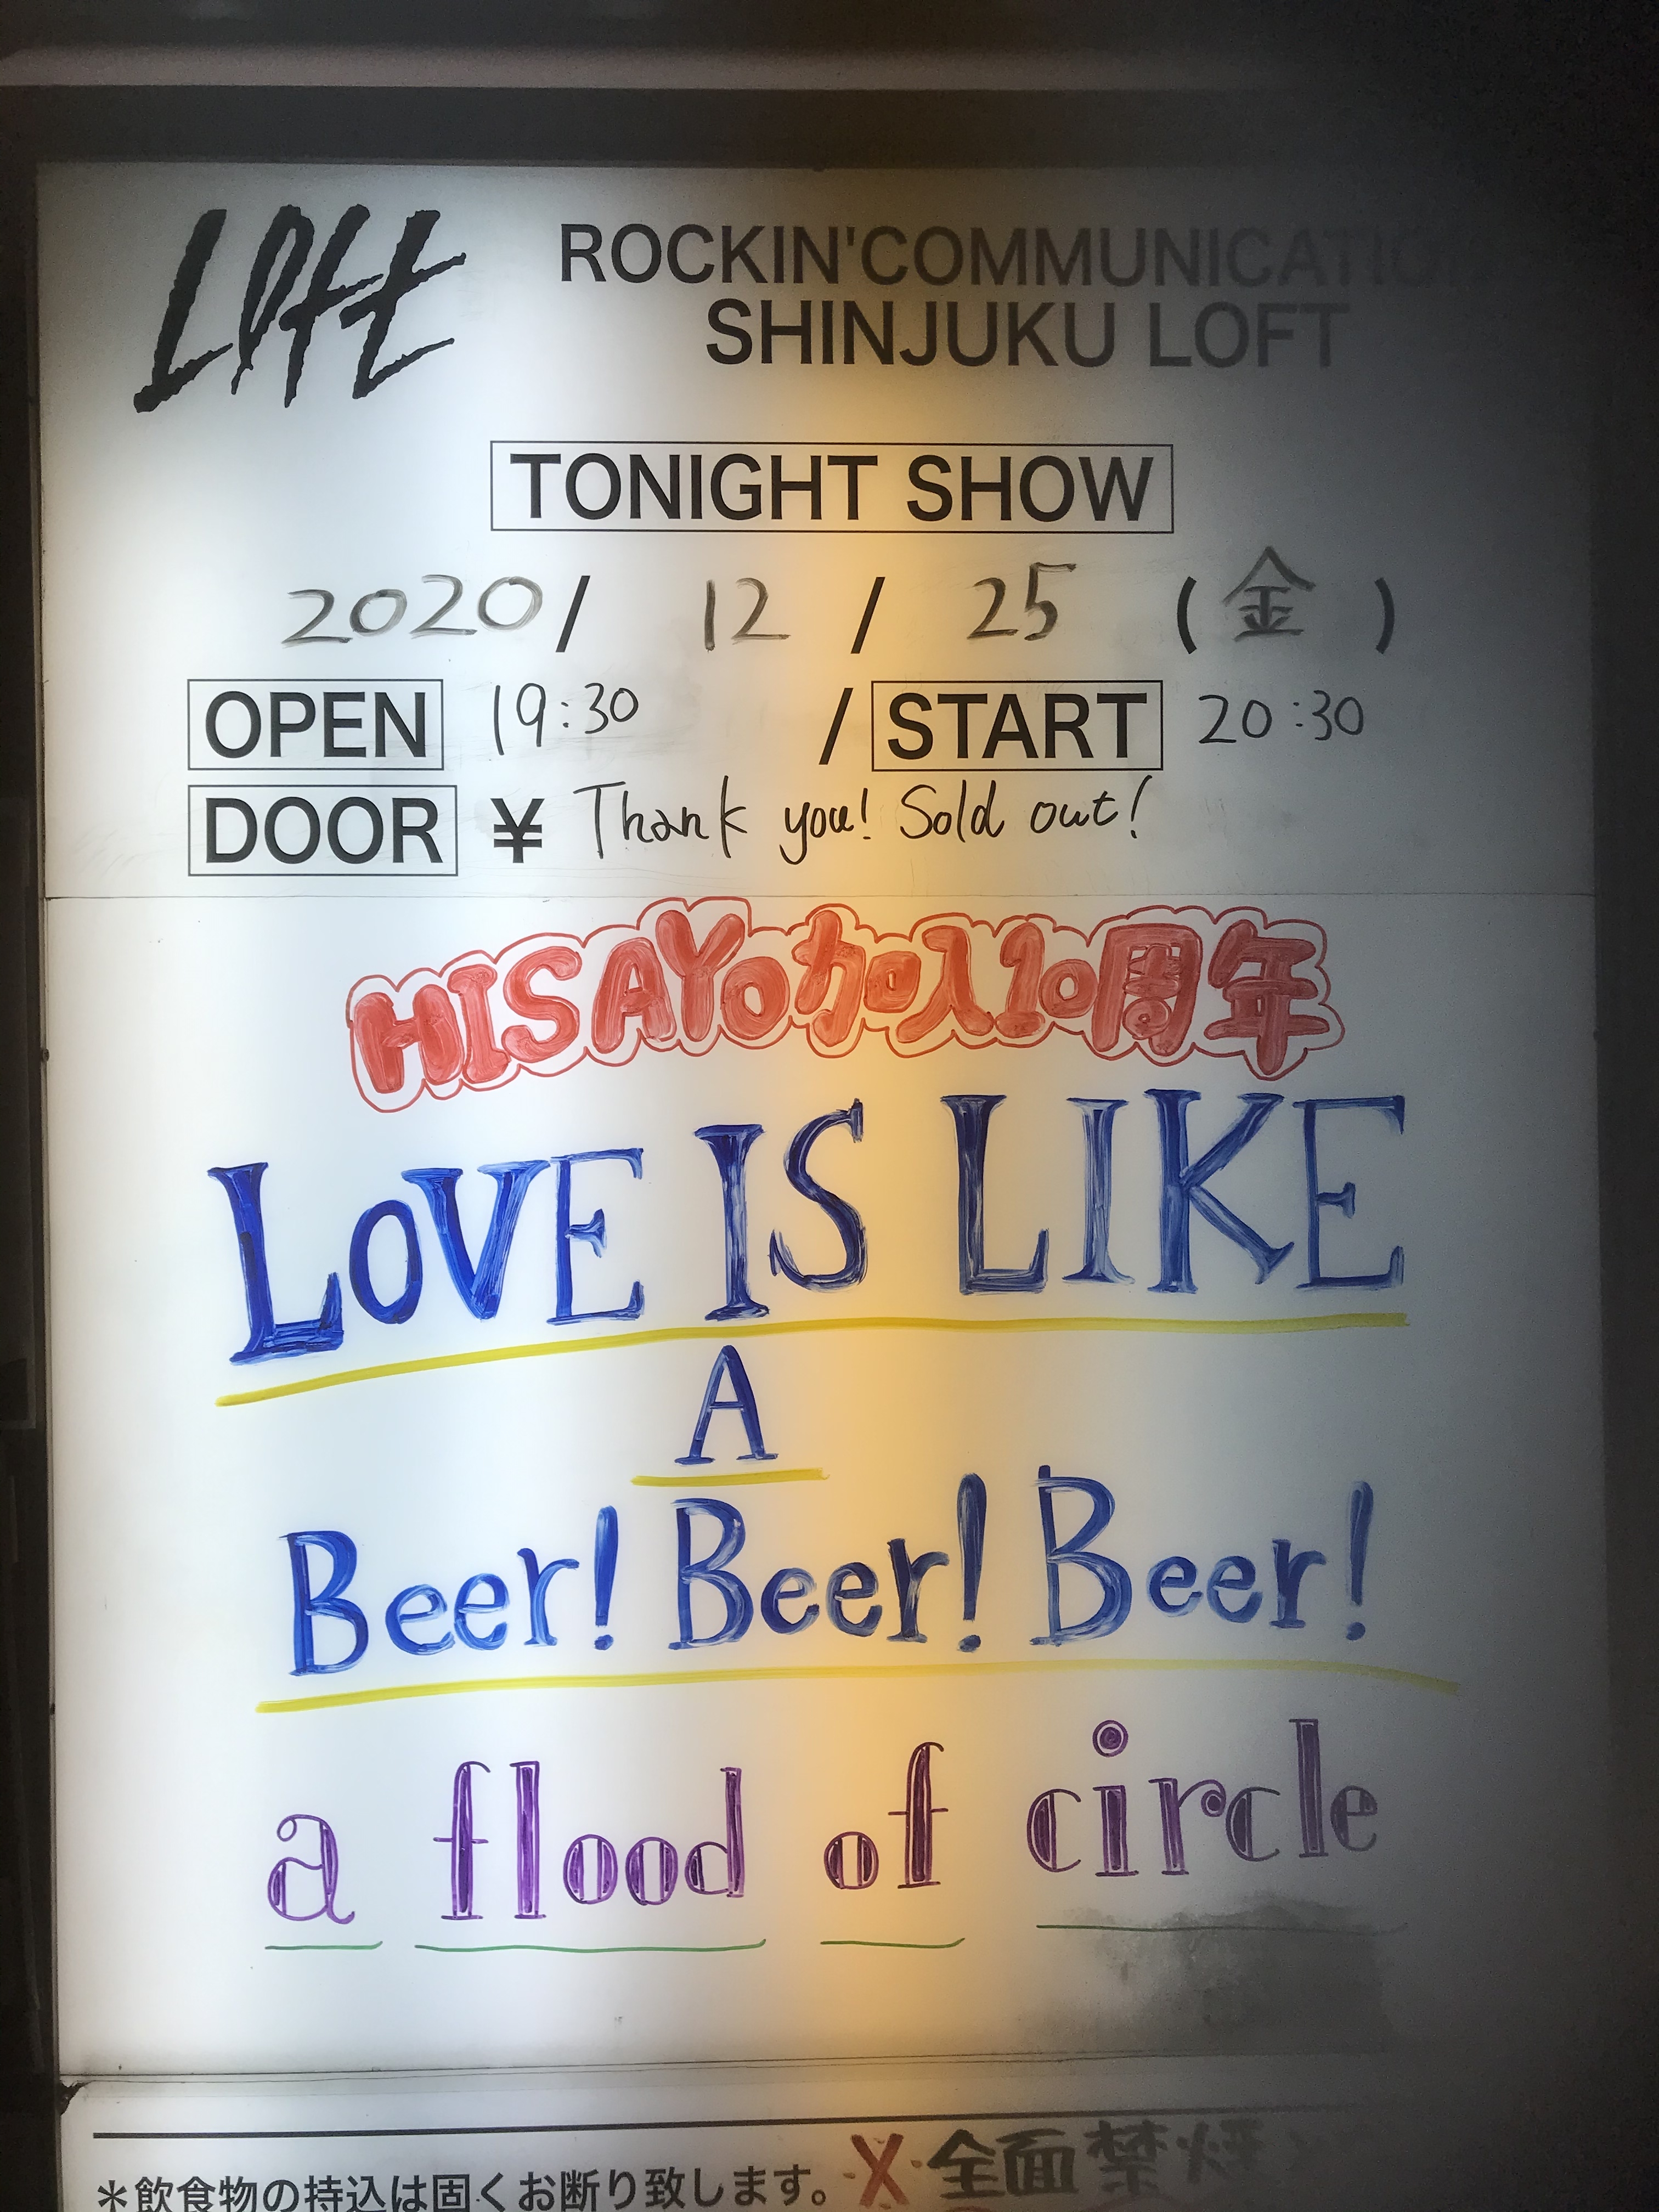 LOFT
ROCKIN'COMMUNICATION
SHINJUKU LOFT
TONIGHT SHOW
2020 / 12 / 25 (金)
OPEN 19:30 / START 20:30
DOOR ¥ Thank you! Sold out!
HISAYO加入10周年
LOVE IS LIKE
A
Beer! Beer! Beer!
a flood of circle
*飲食物の持込は固くお断り致します。 X 全面禁煙